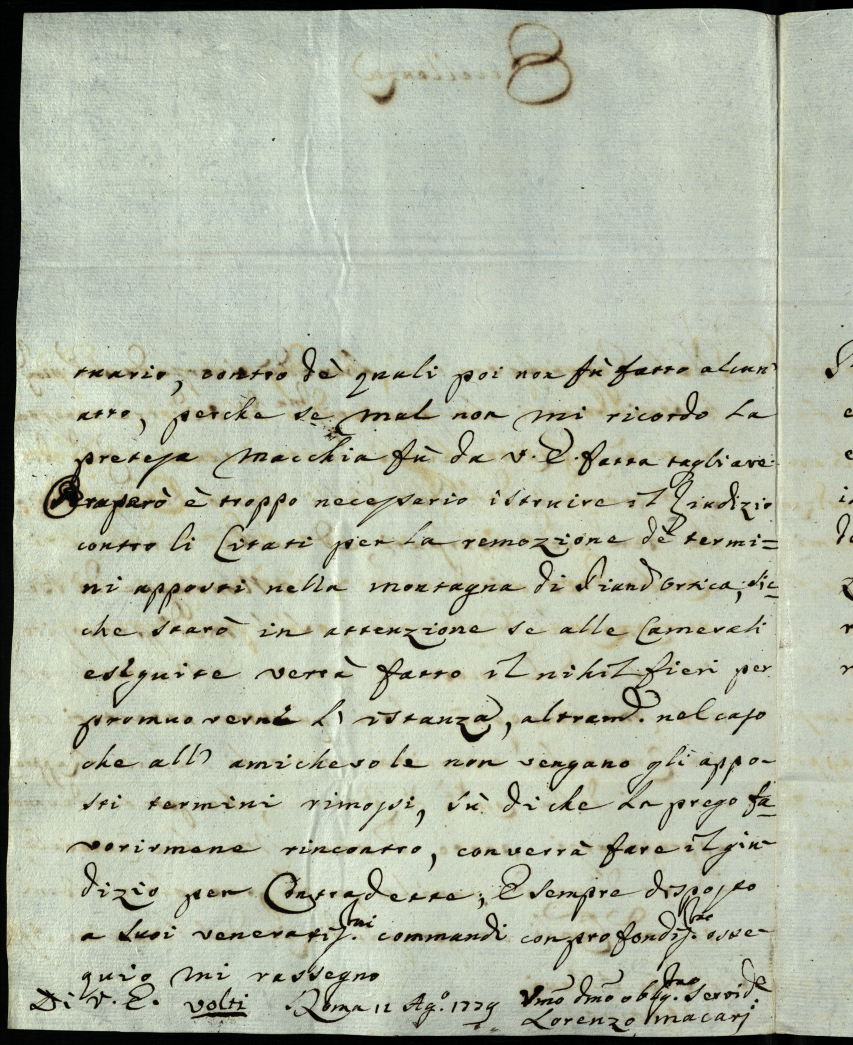 8
tuario, contro dè quali poi non fù fatto alcun
atto, perche se mal non mi ricordo la
pretesa Macchia fù da V. E. fatta tagliare
peraperò è troppo necessario istruire il Giudizio
contro li Citati per la remozione dè termi=
ni apposti nella montagna di Piand'Ortica, sic=
che starò in attenzione se alle Camerali
eseguite verrà fatto il nihil fieri per
promuoverne l'istanza, altram.e nel caso
che all'amichevole non vengano gli appo-
sti termini rimossi, sù di che la prego fa=
vorirmene rincontro, converrà fare il giu-
dizio per Contradette; E sempre disposto
a suoi veneratiss.mi commandi con profondiss.mo osse-
quio mi rassegno
Di V. E. volti Roma 11 Ag.o 1779 Vmo Dmo obblig.mo Servid.e
Lorenzo Macarj